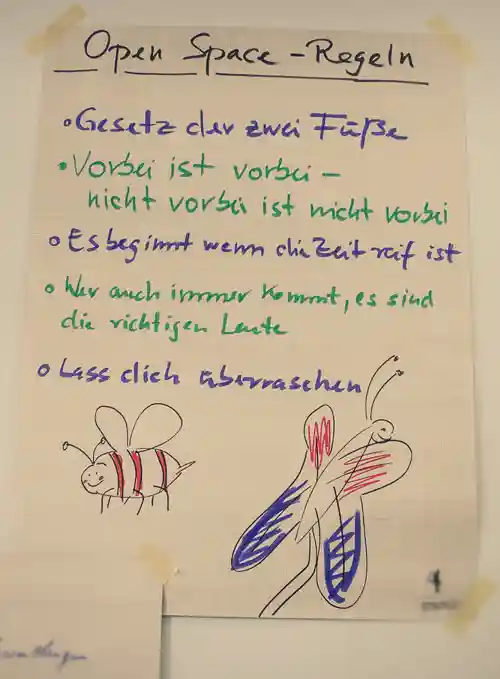 Open Space - Regeln
• Gesetz der zwei Füße
• Vorbei ist vorbei –
nicht vorbei ist nicht vorbei
• Es beginnt wenn die Zeit reif ist
• Wer auch immer kommt, es sind
die richtigen Leute
• Lass dich überraschen
4